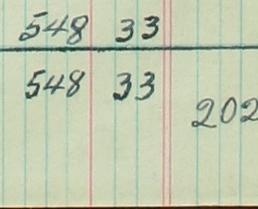 548 33
548 33
202